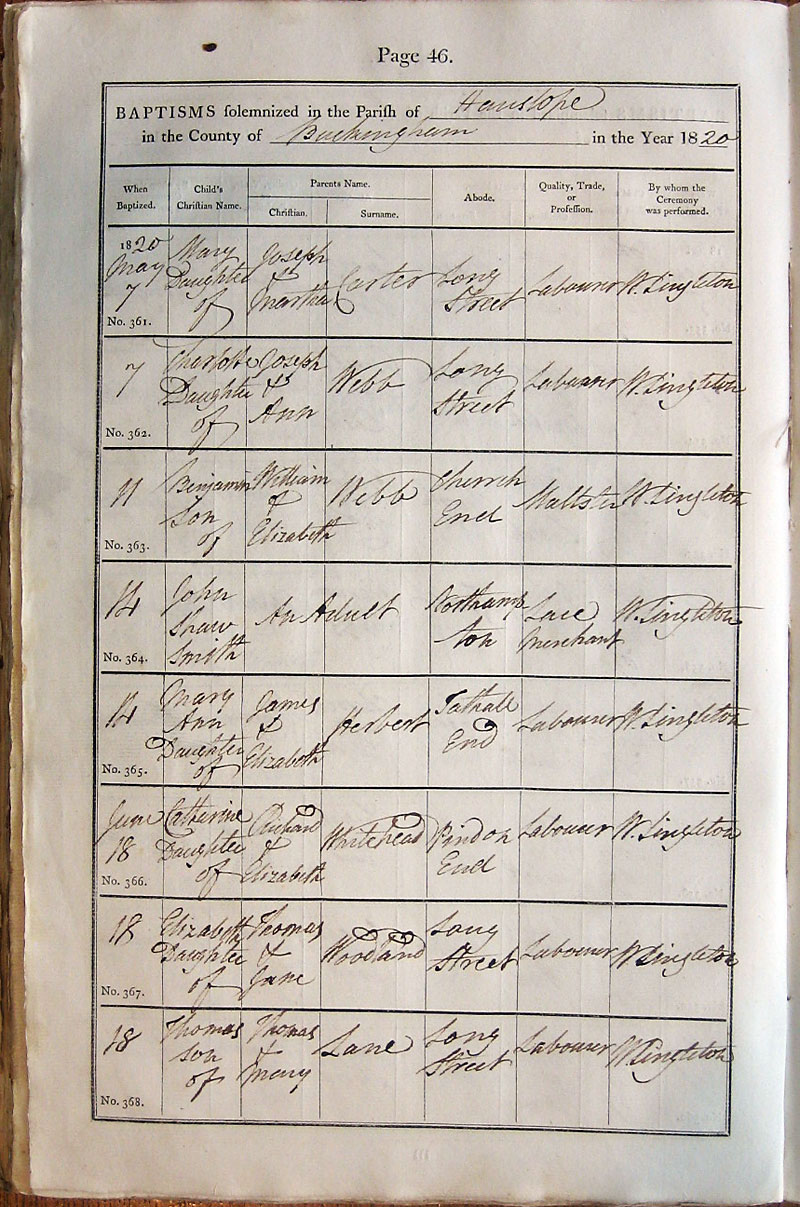 Page 46.
BAPTISMS solemnized in the Parish of Hanslope
in the County of Buckingham in the Year 1820
When Baptized. Child's Christian Name. Parents Name. Christian. Surname. Abode. Quality, Trade, or Profession. By whom the Ceremony was performed.
1820 May 7 No. 361. Mary Daughter of Joseph & Martha Carter Long Street Labourer W. Singleton
7 No. 362. Charlotte Daughter of Joseph & Ann Webb Long Street Labourer W. Singleton
11 No. 363. Benjamin Son of William & Elizabeth Webb Church End Maltster W. Singleton
14 No. 364. John Shaw Smith An Adult Northampton Lace Merchant W. Singleton
14 No. 365. Mary Ann Daughter of James & Elizabeth Herbert Tathall End Labourer W. Singleton
June 18 No. 366. Catherine Daughter of Richard & Elizabeth Whitehead Pindon End Labourer W. Singleton
18 No. 367. Elizabeth Daughter of Thomas & Jane Woodland Long Street Labourer W. Singleton
18 No. 368. Thomas Son of Thomas & Mary Lane Long Street Labourer W. Singleton